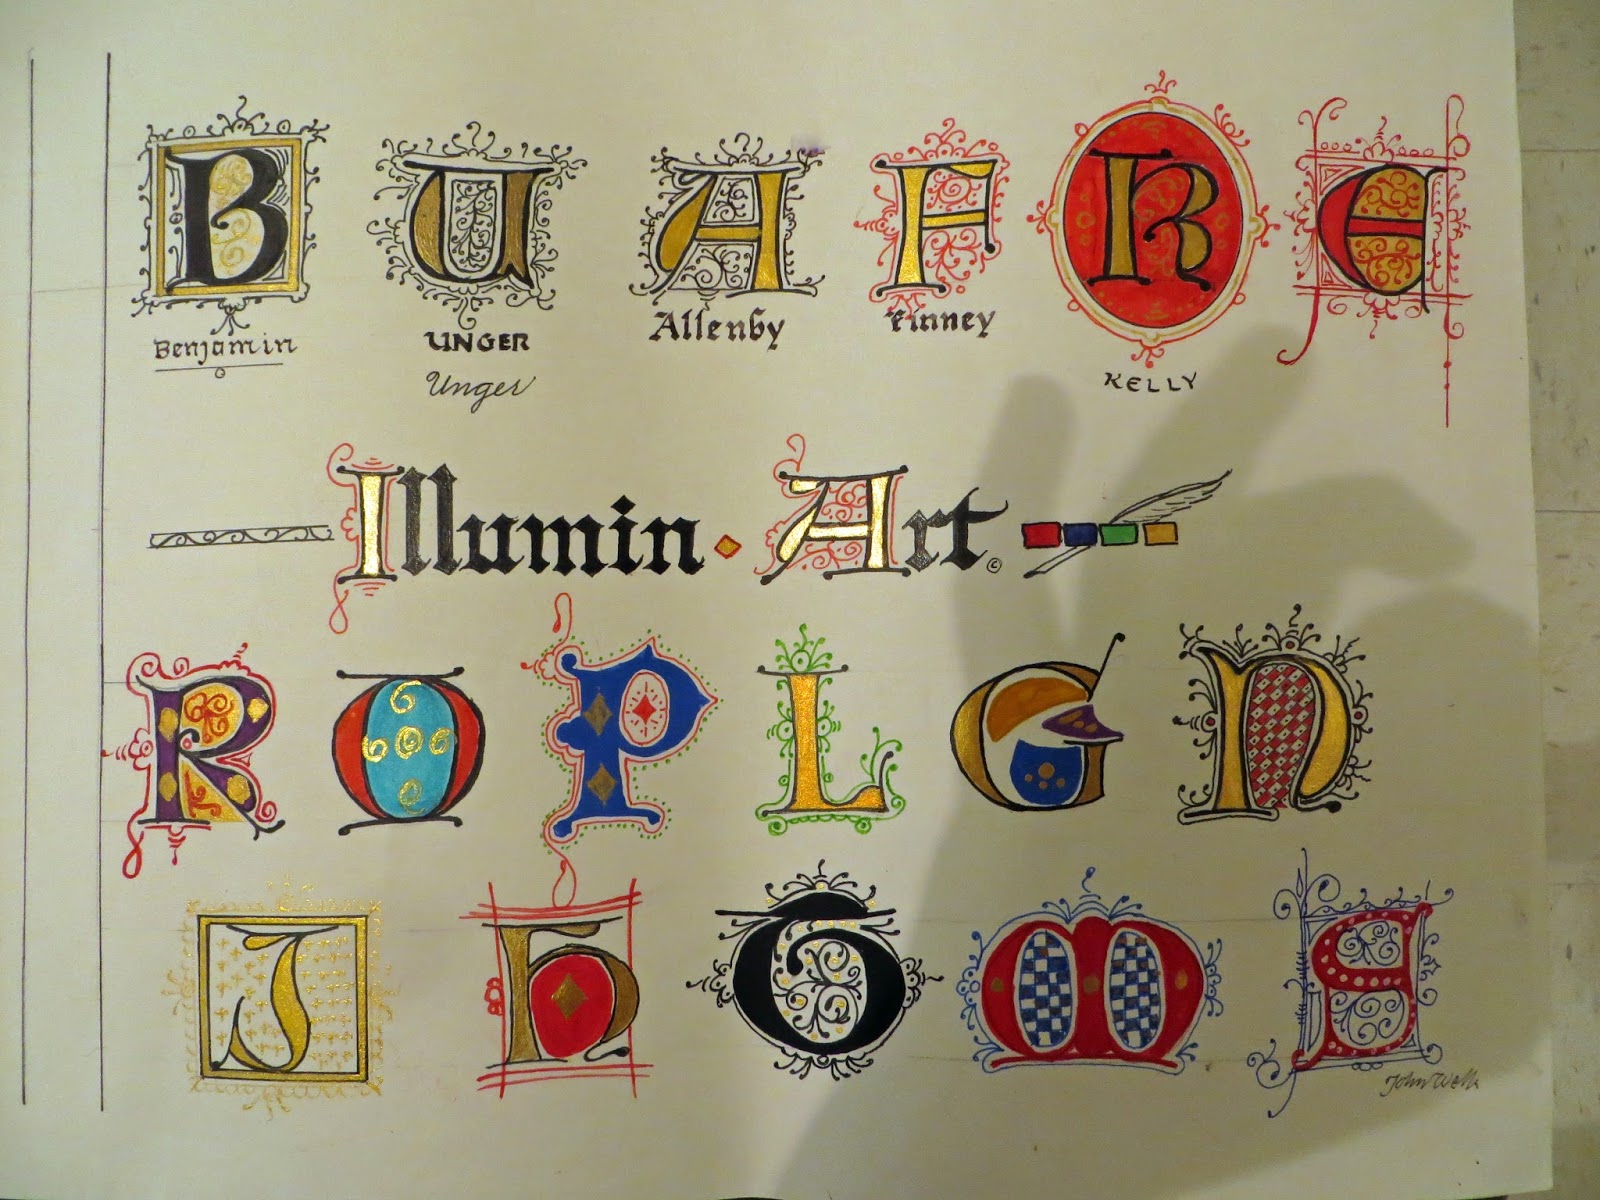 B U A F K E
Benjamin UNGER Allenby Finney KELLY
Unger
Illumin · Art ©
R O P L G N
J H G M S
John Wells